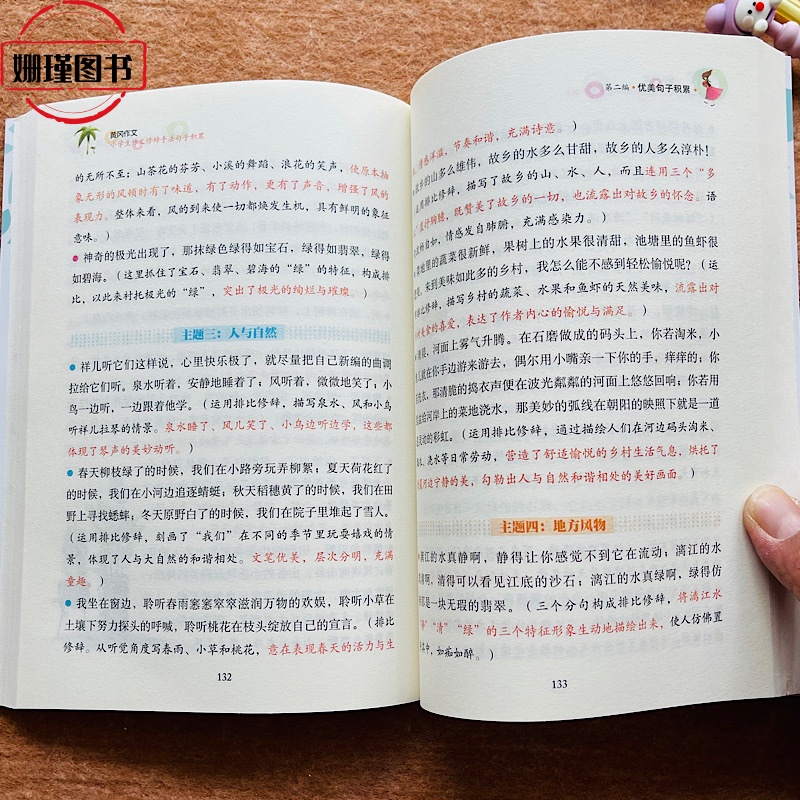 姗瑾图书
黄冈作文
小学生作文修辞手法句子积累
的无所不至；山茶花的芬芳、小溪的舞蹈、浪花的笑声，使原本抽
象无形的风顿时有了味道，有了动作，更有了声音，增强了风的
表现力。整体来看，风的到来使一切都焕发生机，具有鲜明的象征
意味。）
神奇的极光出现了，那抹绿色绿得如宝石，绿得如翡翠，绿得
如碧海。（这里抓住了宝石、翡翠、碧海的“绿”的特征，构成排
比，以此来衬托极光的“绿”，突出了极光的绚烂与璀璨。）
主题三：人与自然
祥儿听它们这样说，心里快乐极了，就尽量把自己新编的曲调
拉给它们听。泉水听着，安静地睡着了；风听着，微微地笑了；小
鸟一边听，一边跟着他学。（运用排比修辞，描写泉水、风和小鸟
听祥儿拉琴的情景。泉水睡了、风儿笑了、小鸟边听边学，这些都
体现了琴声的美妙动听。）
春天柳枝绿了的时候，我们在小路旁玩弄柳絮；夏天荷花红了
的时候，我们在小河边追逐蜻蜓；秋天稻穗黄了的时候，我们在田
野上寻找蟋蟀；冬天原野白了的时候，我们在院子里堆起了雪人。
（运用排比修辞，刻画了“我们”在不同的季节里玩耍嬉戏的情
景，体现了人与大自然的和谐相处。文笔优美，层次分明，充满
童趣。）
我坐在窗边，聆听春雨窸窸窣窣滋润万物的欢娱，聆听小草在
土壤下努力探头的呼喊，聆听桃花在枝头绽放自己的宣言。（排比
修辞。从听觉角度写春雨、小草和桃花，意在表现春天的活力与生
132
第二编·优美句子积累
，情感洋溢，节奏和谐，充满诗意。）
故乡的山多么雄伟，故乡的水多么甘甜，故乡的人多么淳朴！
运用排比修辞，描写了故乡的山、水、人，而且连用三个“多
，直抒胸臆，既赞美了故乡的一切，也流露出对故乡的怀念。语
畅自如，情感发自肺腑，充满感染力。）
菜地里的蔬菜很新鲜，果树上的水果很清甜，池塘里的鱼虾很
，来到美味如此多的乡村，我怎么能不感到轻松愉悦呢？（运
比修辞，描写乡村的蔬菜、水果和鱼虾的天然美味，流露出对
美食的喜爱，表达了作者内心的愉悦与满足。）
晨，河面上雾气升腾。在石磨做成的码头上，你若淘米，小
就在你手边游来游去，偶尔用小嘴亲一下你的手，痒痒的；你
衣，那清脆的捣衣声便在波光粼粼的河面上悠悠回响；你若用
给河岸上的菜地浇水，那美妙的弧线在朝阳的映照下就是一道
动的彩虹。（运用排比修辞，通过描绘人们在河边码头淘米、
、浇水等日常劳动，营造了舒适愉悦的乡村生活气息，烘托了
河边宁静的美，勾勒出人与自然和谐相处的美好画面。）
主题四：地方风物
漓江的水真静啊，静得让你感觉不到它在流动；漓江的水
啊，清得可以看见江底的沙石；漓江的水真绿啊，绿得仿
是一块无瑕的翡翠。（三个分句构成排比修辞，将漓江水
静”“清”“绿”的三个特征形象生动地描绘出来，使人仿佛置
其中，如痴如醉。）
133